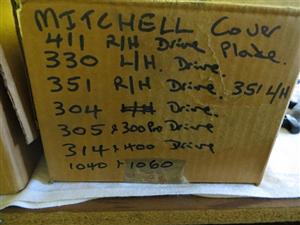 MITCHELL Cover
411 R/H Drive Plate.
330 L/H. Drive.
351 R/H Drive. 351 L/H
304 Drive.
305 & 300 Pro Drive
314 & 400 Drive
1040 & 1060